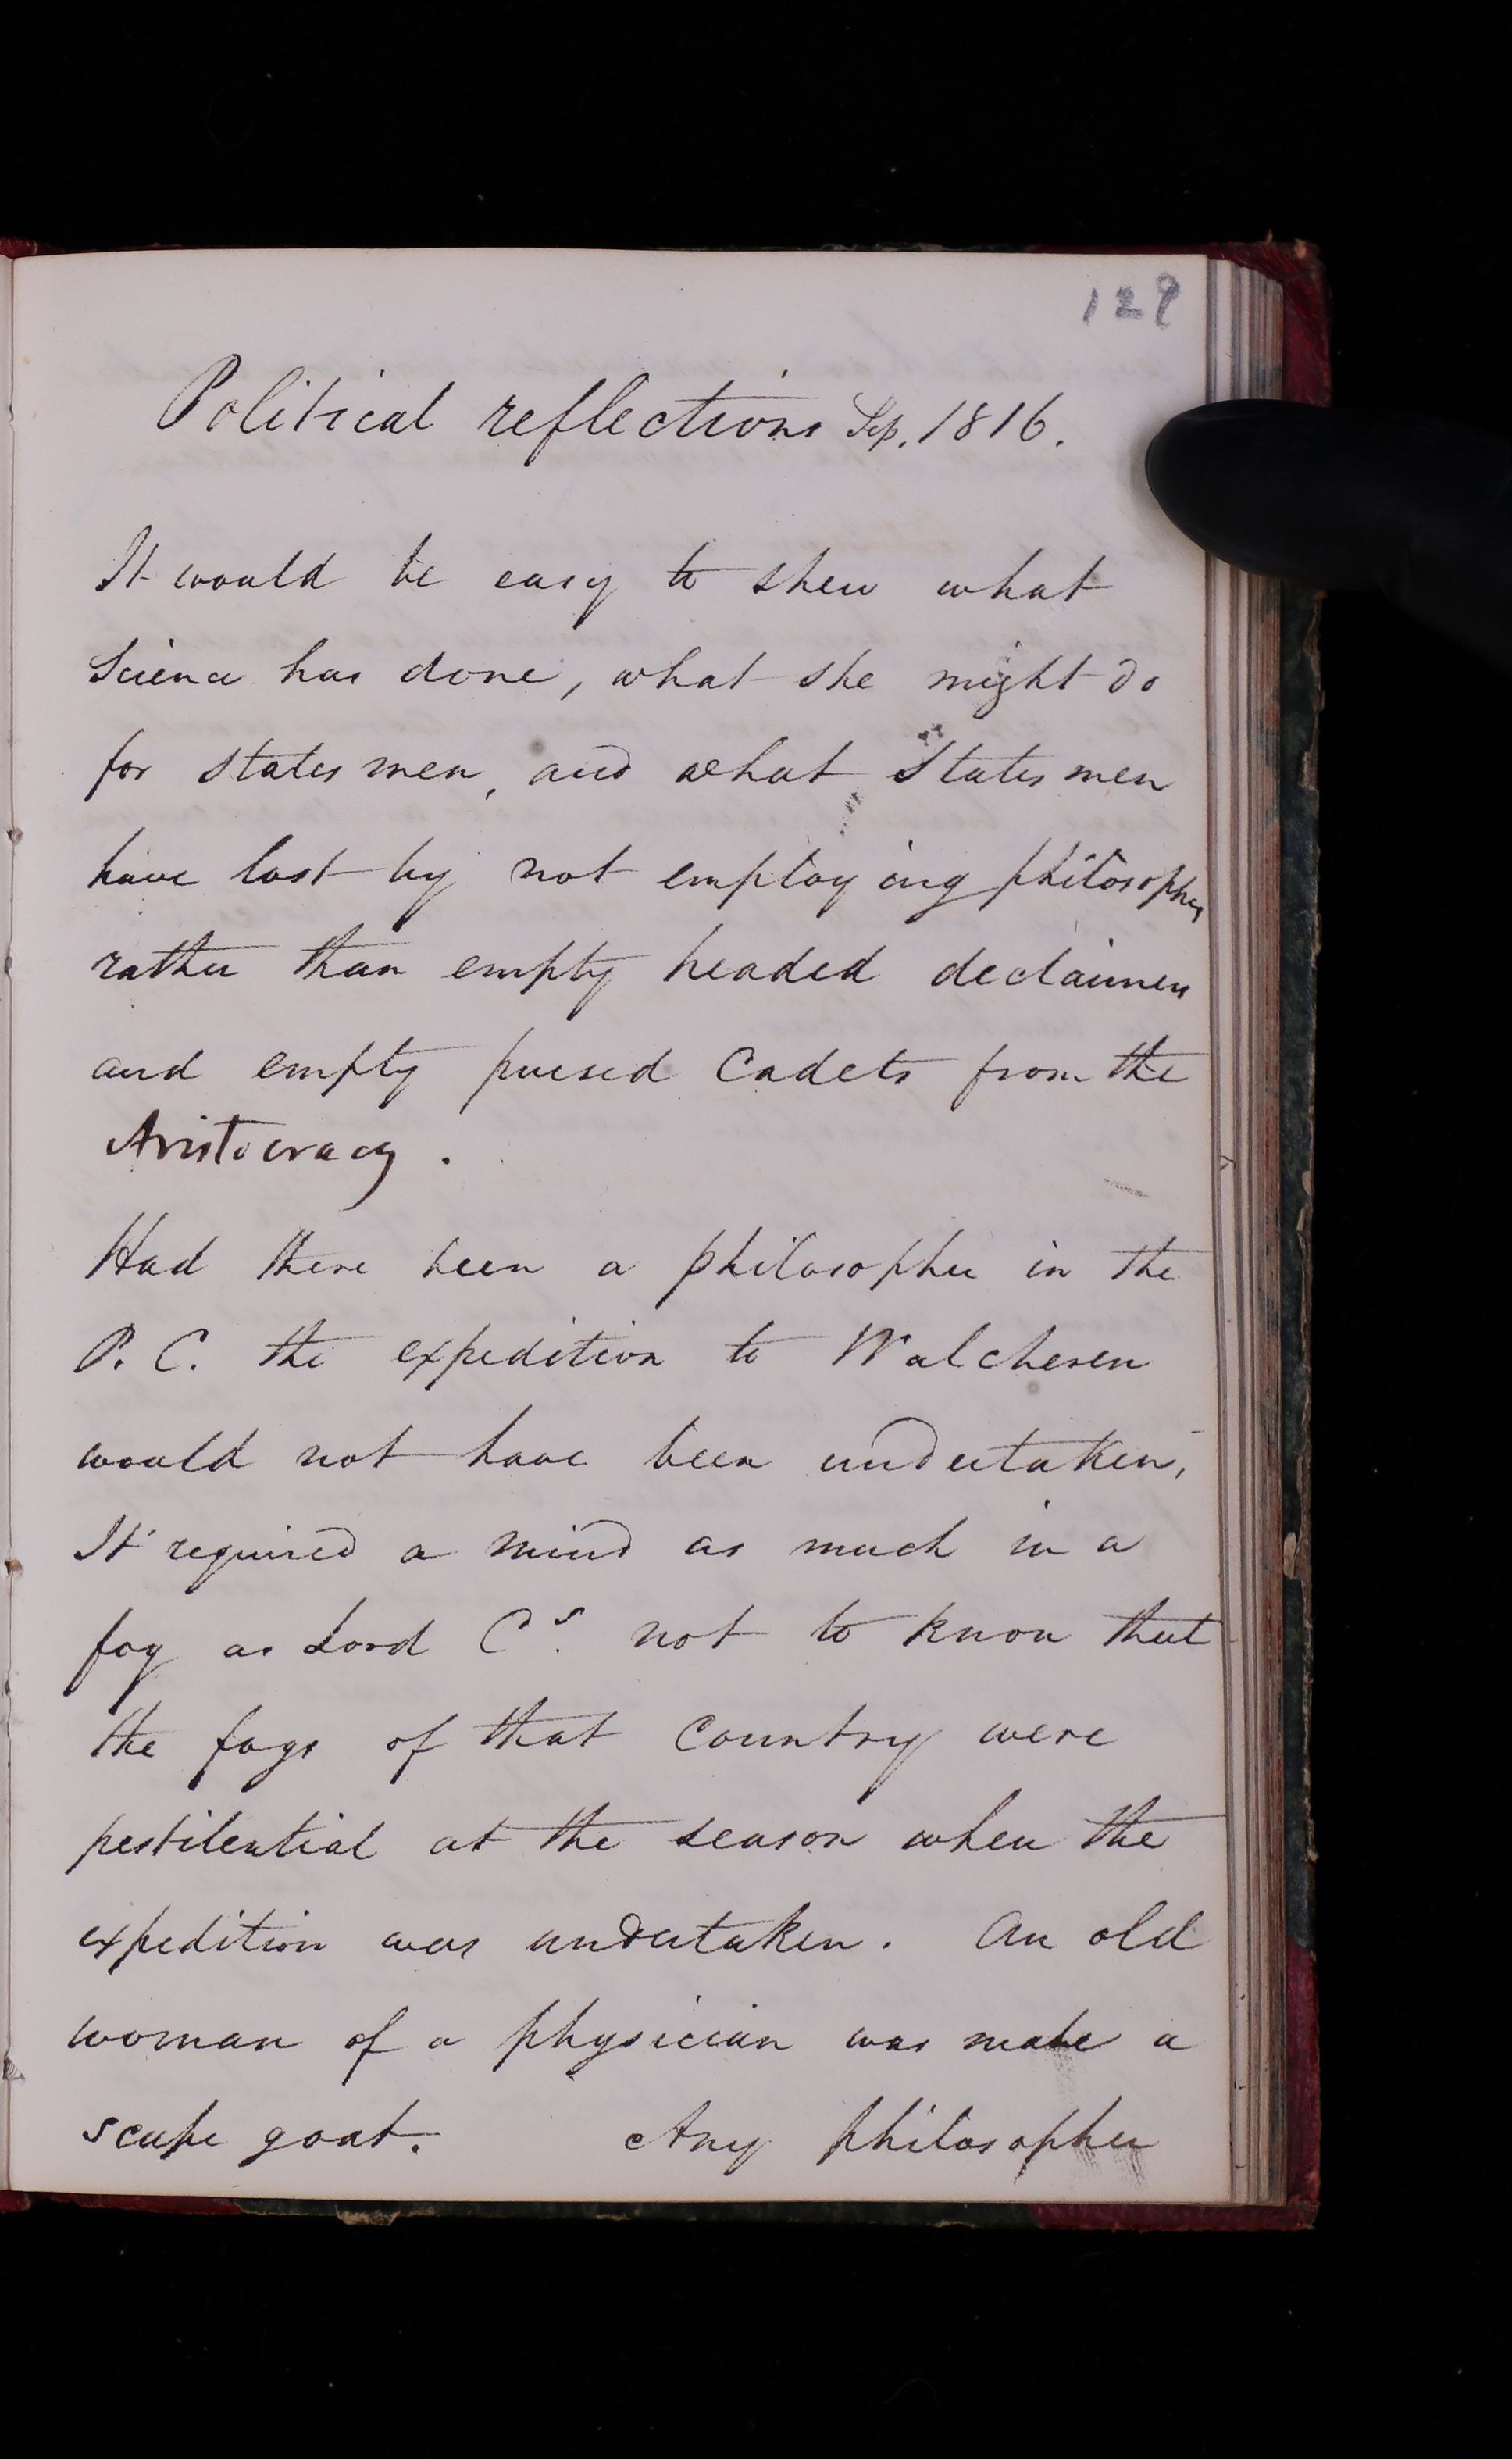 129
Political reflections Sep. 1816.
It would be easy to shew what
Science has done, what she might do
for statesmen, and what Statesmen
have lost by not employing philosophers
rather than empty headed declaimers
and empty pursed Cadets from the
Aristocracy.
Had there been a philosopher in the
P. C. the expedition to Walcheren
would not have been undertaken,
It required a mind as much in a
fog as Lord C's. not to know that
the fogs of that Country were
pestilential at the season when the
expedition was undertaken. An old
woman of a physician was made a
scape goat. Any philosopher